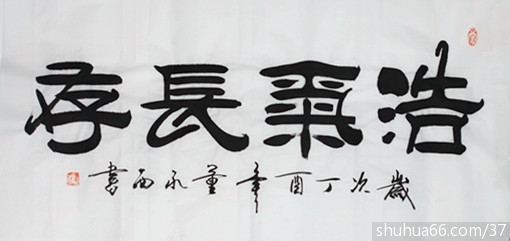 浩氣長存
歲次丁酉年董永西書
shuhua66.com/37